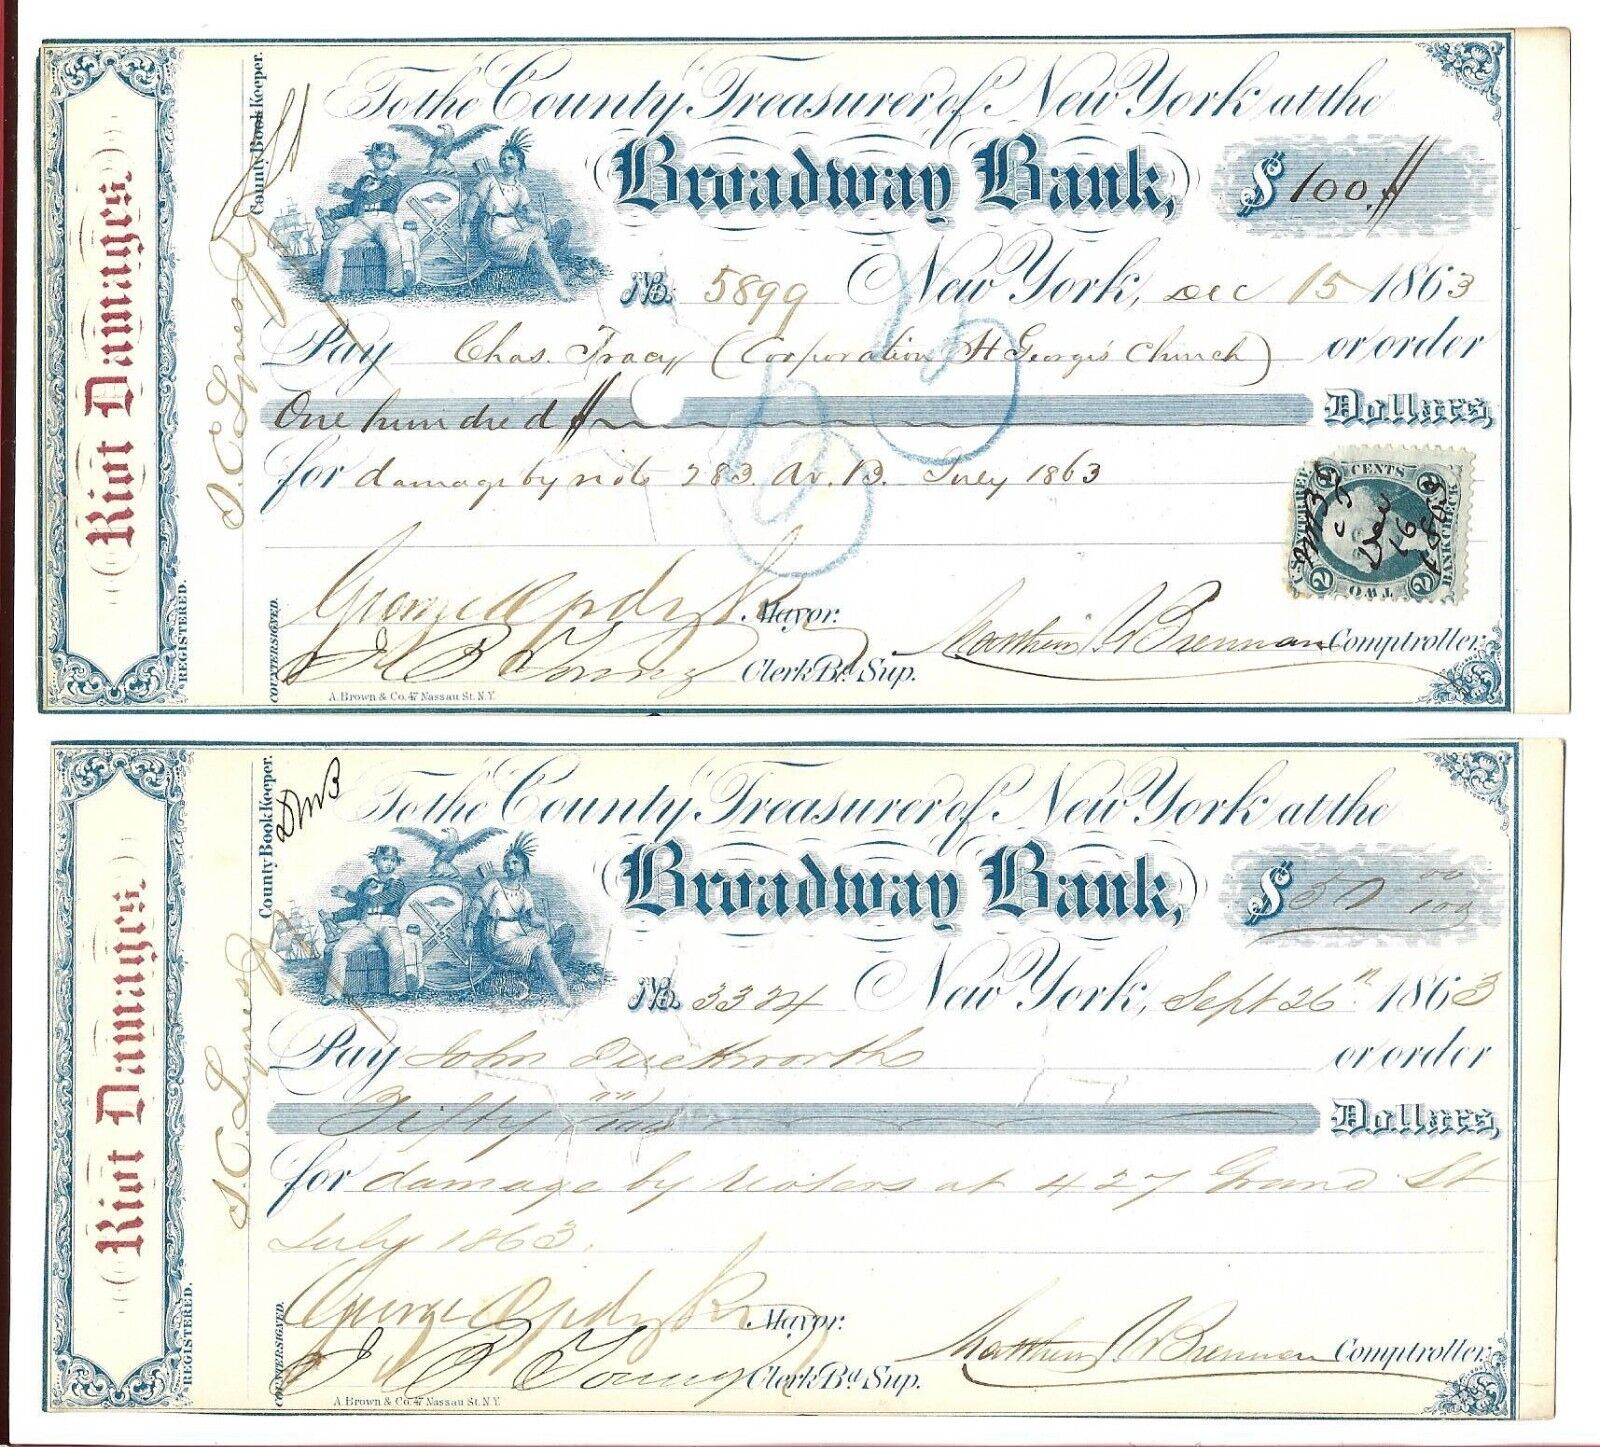 Riot Damages.
REGISTERED.
J. C. Lynes
County Book Keeper.
To the County Treasurer of New York at the
Broadway Bank,
$ 100.
No. 5899 New York, Dec 15 1863
Pay Chas. Tracy (Corporation St Georges Church) or order
One hundred Dollars,
for damage by riot 283 Av. B. July 1863
U.S. INTER. REV.
TWO CENTS
BANK CHECK
2 2
2 2
Dec
16
1863
COUNTERSIGNED.
George Opdyke Mayor.
Matthew T Brennan Comptroller.
J B Young Clerk Bd. Sup.
A. Brown & Co. 47 Nassau St. N.Y.
Riot Damages.
REGISTERED.
J. C. Lynes
County Book Keeper.
To the County Treasurer of New York at the
Broadway Bank,
$ 50 00/100
No. 3324 New York, Sept 26th 1863
Pay John Duckworth or order
Fifty 00/100 Dollars,
for damage by rioters at 427 Grand St
July 1863.
COUNTERSIGNED.
George Opdyke Mayor.
Matthew T Brennan Comptroller.
J B Young Clerk Bd. Sup.
A. Brown & Co. 47 Nassau St. N.Y.